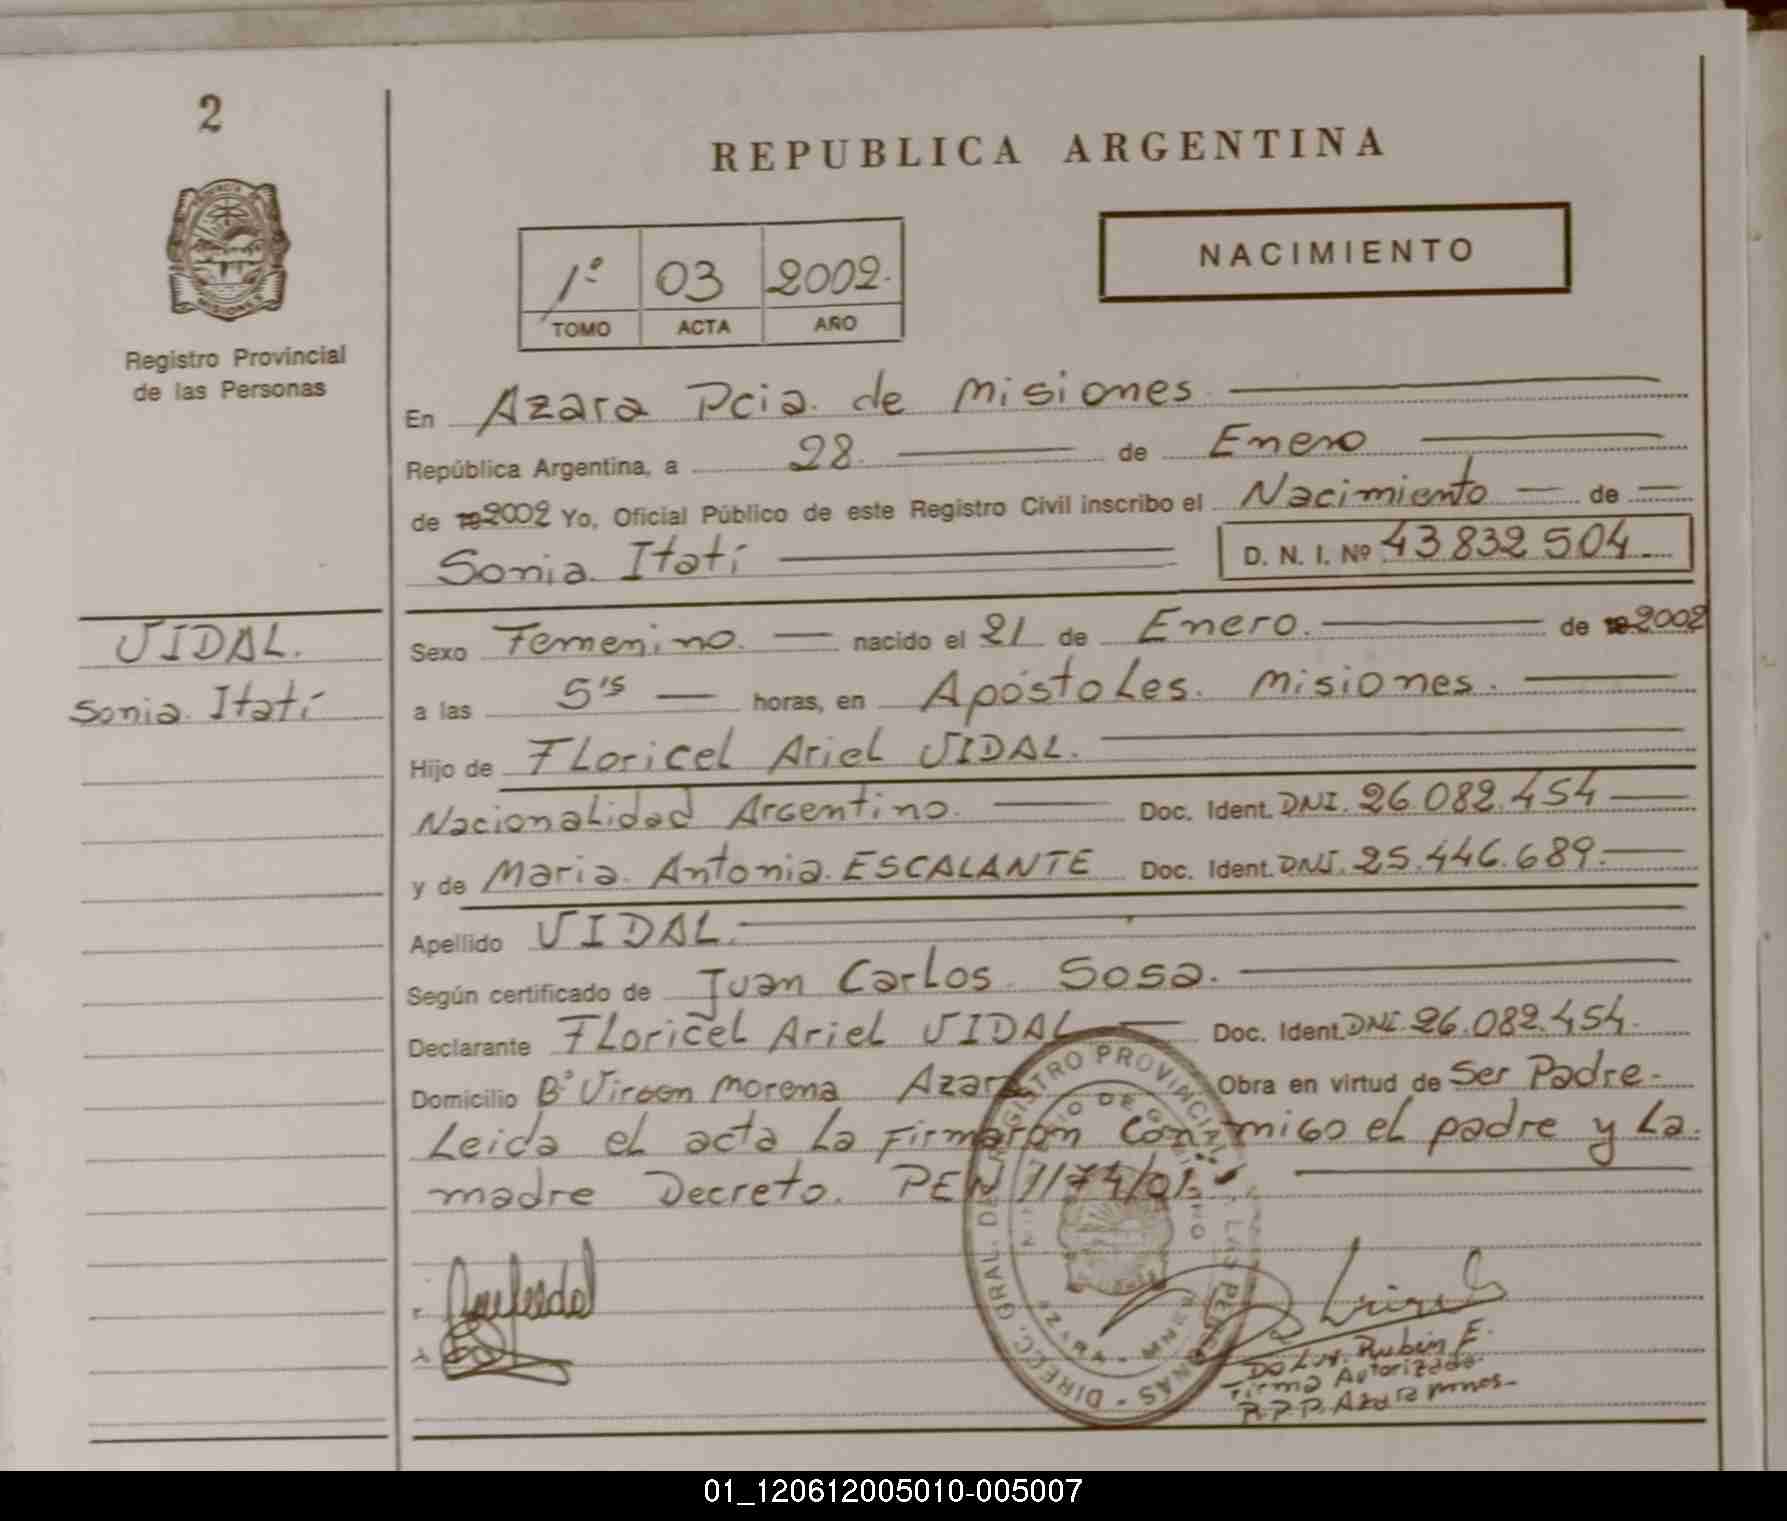 2
REPUBLICA ARGENTINA
NACIMIENTO
1º 03 2002.
TOMO ACTA AÑO
MISIONES
Registro Provincial
de las Personas
En Azara Pcia. de Misiones
República Argentina, a 28. de Enero
de 19 2002 Yo, Oficial Público de este Registro Civil inscribo el Nacimiento de
Sonia Itatí D. N. I. Nº 43832504
VIDAL.
Sonia Itatí
Sexo Femenino. nacido el 21 de Enero. de 19 2002
a las 5's horas, en Apóstoles. Misiones.
Hijo de Floricel Ariel VIDAL.
Nacionalidad Argentino. Doc. Ident. DNI. 26.082.454
y de Maria Antonia ESCALANTE Doc. Ident. DNI. 25.446.689.
Apellido VIDAL.
Según certificado de Juan Carlos Sosa.
Declarante Floricel Ariel VIDAL Doc. Ident. DNI. 26.082.454.
Domicilio Bº Virgen Morena Azara Obra en virtud de Ser Padre.
Leida el acta la Firmaron Conmigo el padre y la
madre Decreto. PEN
DIRECC. GRAL. DE REGISTRO PROVINCIAL DE LAS PERSONAS
MINISTERIO DE GOBIERNO
AZARA - MNES
Rubén E.
Firma Autorizada
R.P.P. Azara mnes-
01_120612005010-005007